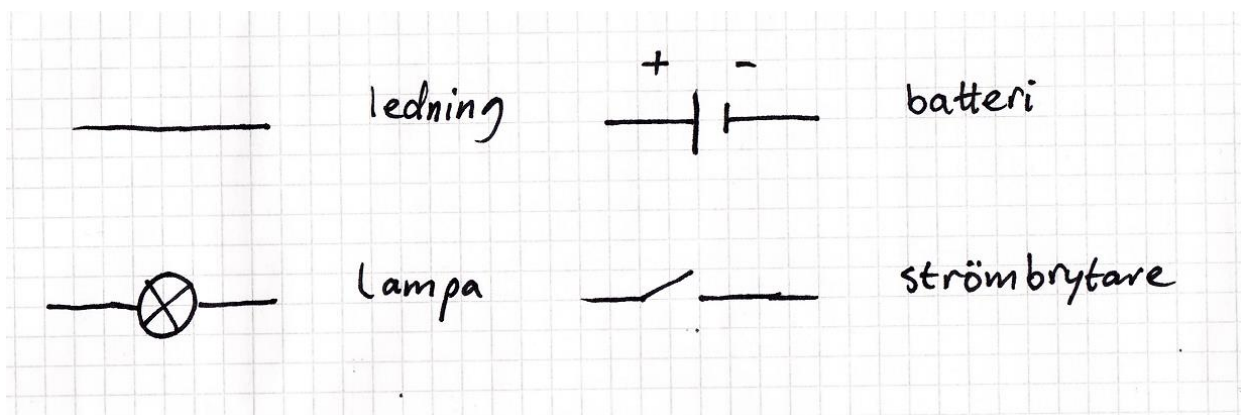 ledning
+ -
batteri
lampa
strömbrytare